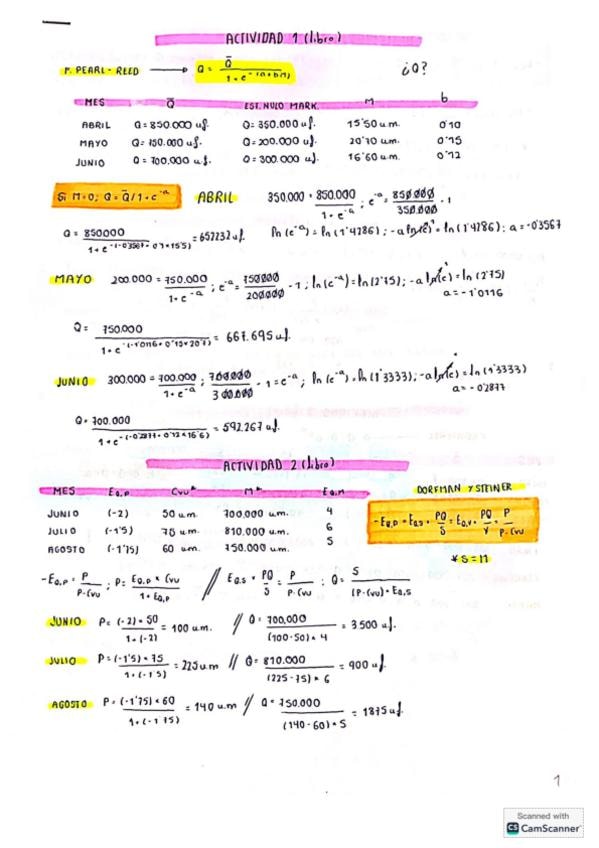 ACTIVIDAD 1 (libro)
M. PEARL - REED → Q = Q̄ / 1+e^-(a+bM) ¿Q?
MES Q̄ EST. NULO MARK. M b
ABRIL Q=850.000 uf. Q=350.000 uf. 15'50 u.m. 0'10
MAYO Q=750.000 uf. Q=200.000 uf. 20'70 u.m. 0'15
JUNIO Q=700.000 uf. Q=300.000 uf. 16'60 u.m. 0'12
Si M=0; Q=Q̄/1+e^-a ABRIL 350.000 = 850.000 / 1+e^-a ; e^-a = 850.000 / 350.000 - 1
Q = 850000 / 1+e^-(-0'3567+0'1×15'5) = 657232 uf. ln(e^-a) = ln(1'4286); -a ln(e) = ln(1'4286); a=-0'3567
MAYO 200.000 = 750.000 / 1+e^-a ; e^-a = 750000 / 200000 - 1; ln(e^-a) = ln(2'75); -a ln(e) = ln(2'75)
a=-1'0116
Q = 750.000 / 1+e^-(-1'0116+0'15×20'7) = 667.695 uf.
JUNIO 300.000 = 700.000 / 1+e^-a ; 700.000 / 300.000 - 1 = e^-a; ln(e^-a) = ln(1'3333); -a ln(e) = ln(1'3333)
a=-0'2877
Q = 700.000 / 1+e^-(-0'2877+0'12×16'6) = 592.267 uf.
ACTIVIDAD 2 (libro)
MES EQ,P CVU* M* EQ,M DORFMAN Y STEINER
JUNIO (-2) 50 u.m. 700.000 u.m. 4
JULIO (-1'5) 75 u.m. 810.000 u.m. 6
AGOSTO (-1'75) 60 u.m. 750.000 u.m. 5
-EQ,P = EQ,S · PQ / S = EQ,V · PQ / V = P / P-CVU
* S = M
-EQ,P = P / P-CVU ; P = EQ,P × CVU / 1+EQ,P // EQ,S × PQ / S = P / P-CVU ; Q = S / (P-CVU)*EQ,S
JUNIO P = (-2)*50 / 1+(-2) = 100 u.m. // Q = 700.000 / (100-50)*4 = 3.500 uf.
JULIO P = (-1'5)*75 / 1+(-1'5) = 225 u.m // Q = 810.000 / (225-75)*6 = 900 uf.
AGOSTO P = (-1'75)*60 / 1+(-1'75) = 140 u.m // Q = 750.000 / (140-60)*5 = 1875 uf.
1
Scanned with
CS CamScanner